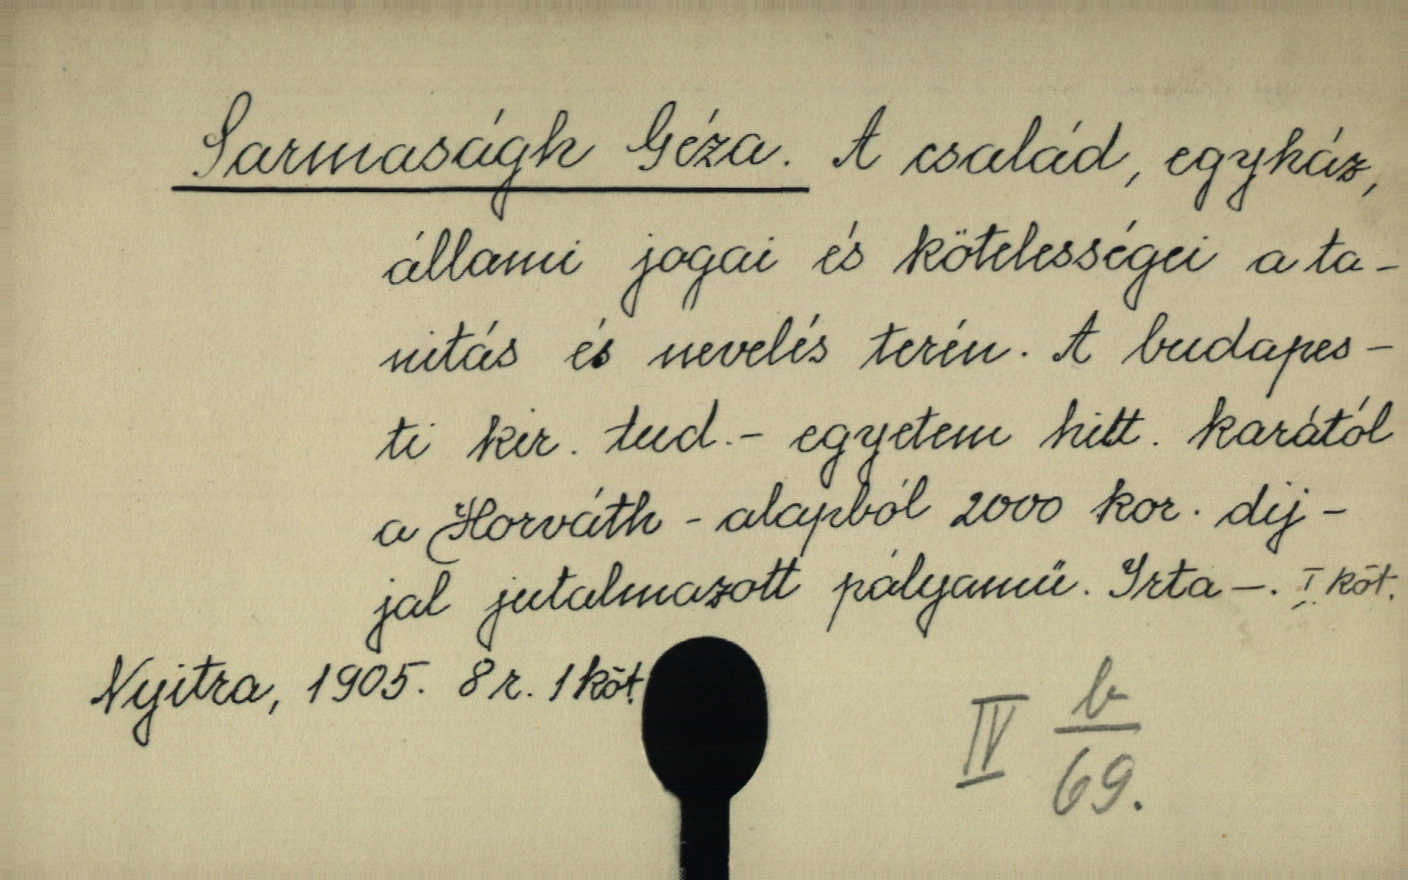 Sarmaságh Géza. A család, egyház,
állami jogai és kötelességei a ta-
nitás és nevelés terén. A budapes-
ti kir. tud.- egyetem hitt. karától
a Horváth - alapból 2000 kor. dij-
jal jutalmazott pályamű. Irta —. I. köt.
Nyitra, 1905. 8 r. 1 köt.
IV b/69.